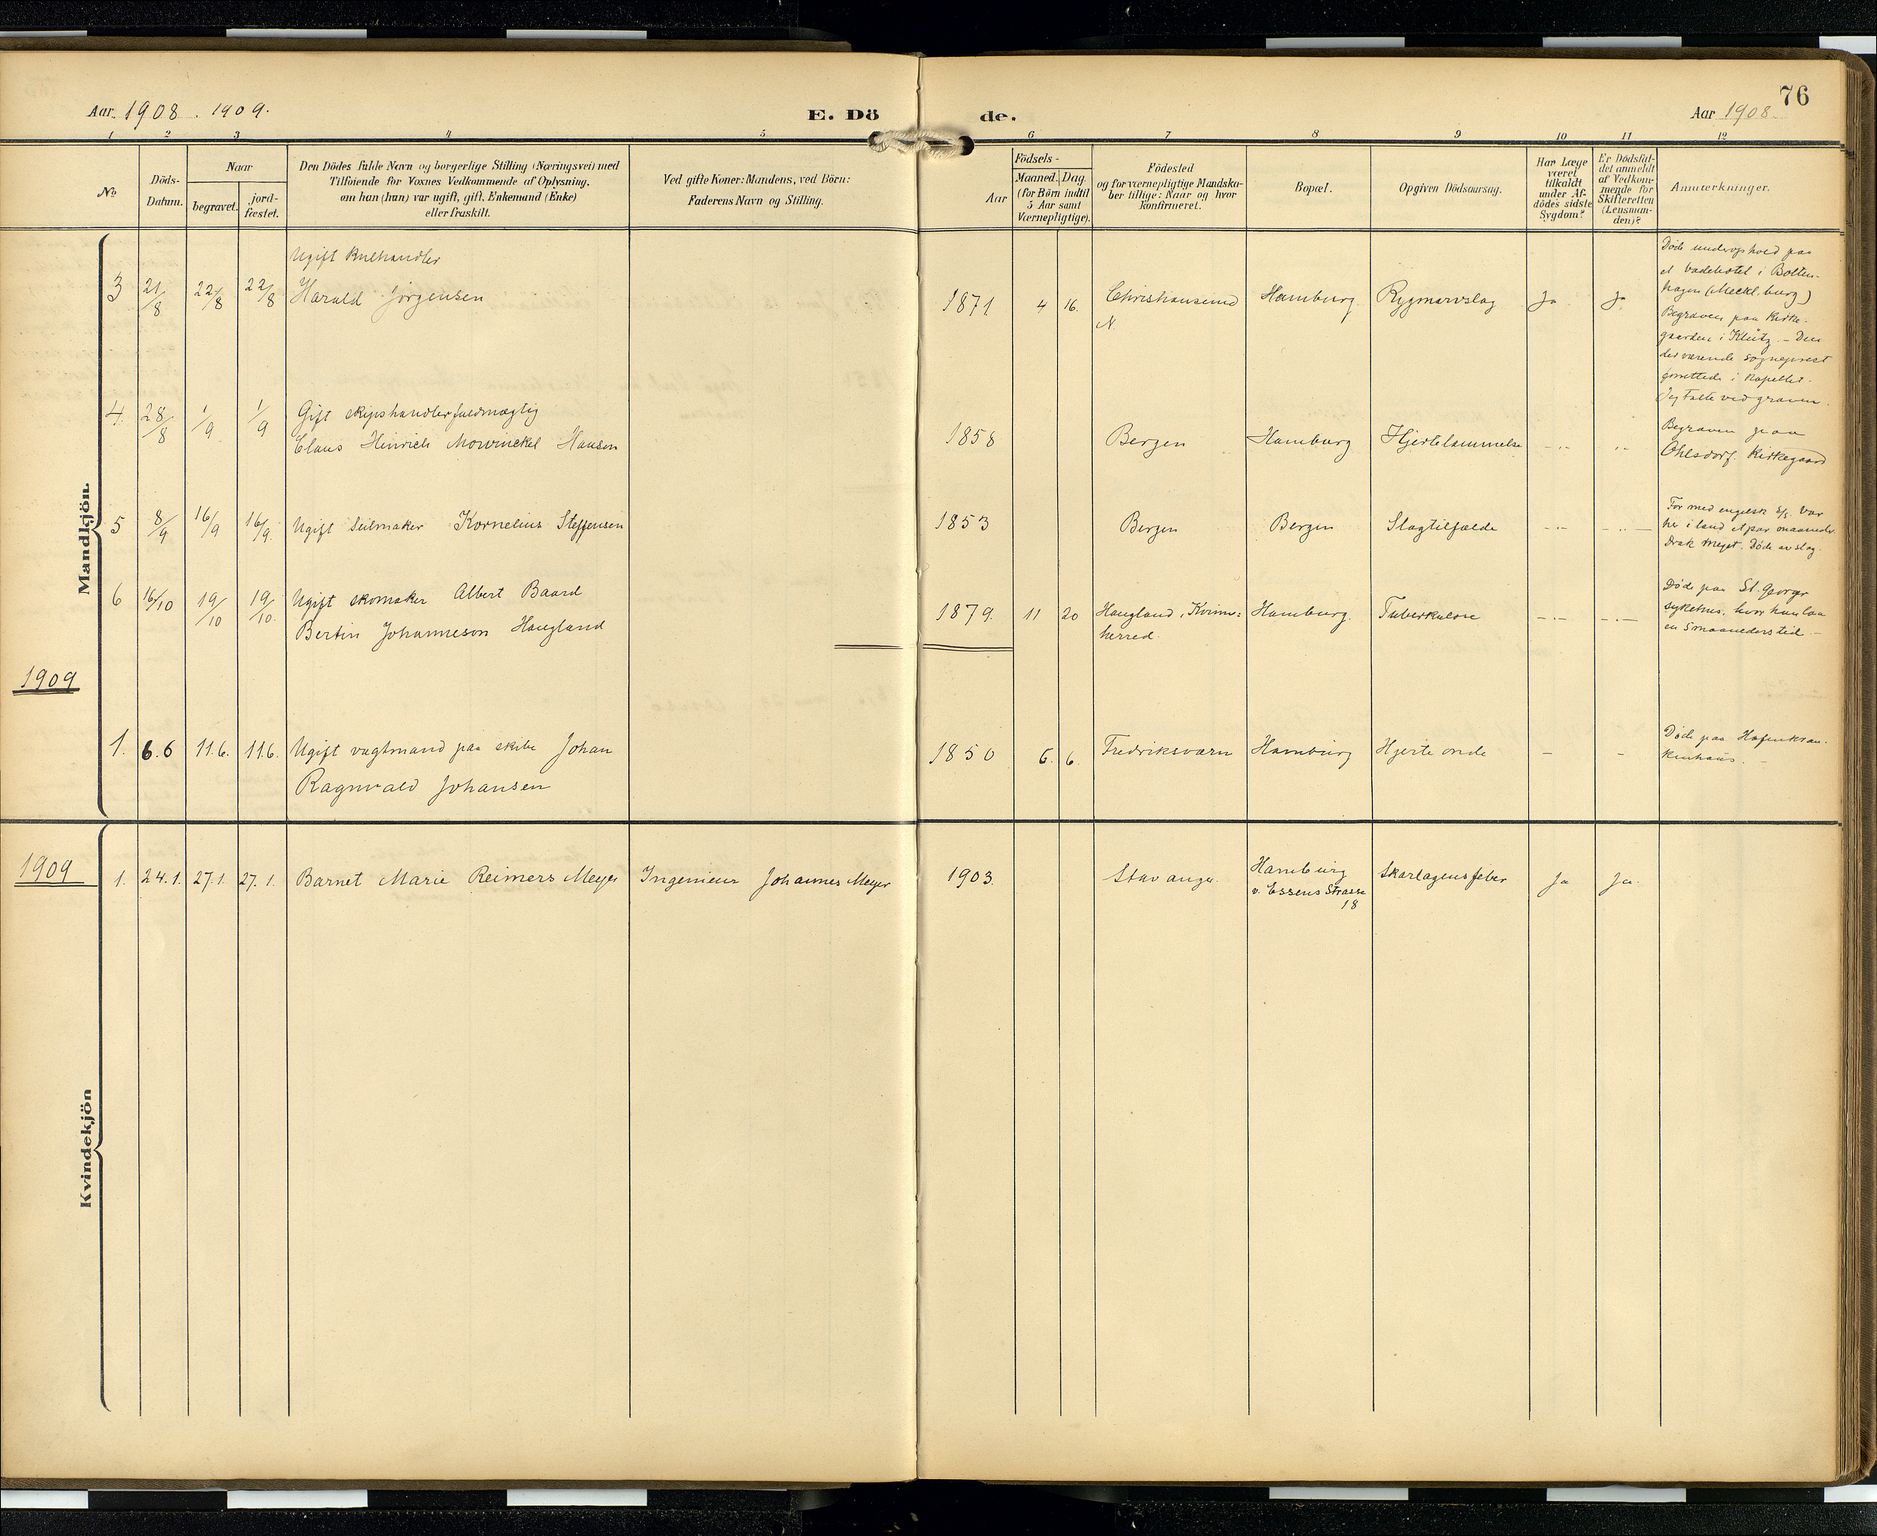 76
Aar 1908. 1909.
E. Dö de.
Aar 1908
1 2 3 4 5 6 7 8 9 10 11 12
No
Döds-
Datum.
Naar
begravet.
jord-
fæstet.
Den Dödes fulde Navn og borgerlige Stilling (Næringsvei) med
Tilföiende for Voxnes Vedkommende af Oplysning,
om han (hun) var ugift, gift, Enkemand (Enke)
eller fraskilt.
Ved gifte Koner: Mandens, ved Börn:
Faderens Navn og Stilling.
Födsels-
Aar
Maaned. Dag.
(for Börn indtil
5 Aar samt
Værnepligtige).
Födested
og for værnepligtige Mandska-
ber tillige: Naar og hvor
konfirmeret.
Bopæl.
Opgiven Dödsaarsag.
Har Læge
været
tilkaldt
under Af-
dödes sidste
Sygdom?
Er Dödsfal-
det anmeldt
af Vedkom-
mende for
Skifteretten
(Lensman-
den)?
Anmærkninger.
Mandkjön.
Ugift Kulhandler
3 21/8 22/8 22/8 Harald Jörgensen
1871 4 16. Christiansund
N.
Hamburg Rygmarvslag Ja Ja
Døde under ophold paa
et badehotel i Bolten-
hagen (Meckl.burg)
Begraven paa Kirke-
gaarden i Klütz. - Den
derværende sogneprest
forrettede i Kapellet.
Jeg talte ved graven.
4. 28/8 1/9 1/9 Gift skipshandlerfuldmægtig
Claus Hinrich Mowinckel Hansen
1858 Bergen Hamburg Hjertelammelse -"- "-
Begraven paa
Ohlsdorf Kirkegaard
5 8/9 16/9 16/9 Ugift Seilmaker Kornelius Steffensen
1853 Bergen Bergen Slagtilfælde -"- -"-
For med engelsk S/S. Var
her i land et par maaneder.
Drak meget. Døde av slag.
6 16/10 19/10 19/10 Ugift skomaker Albert Baard
Bertin Johanneson Haugland
1879. 11 20 Haugland, Kvinn-
herred.
Hamburg. Tuberkulose -"- -"-
Døde paa St. Georgs
sykehus, hvor han laa
en 5 maaneders tid -
1909
1. 6.6 11.6. 11.6. Ugift vagtmand paa skibe Johan
Ragnvald Johansen
1850 6. 6. Fredriksværn Hamburg Hjerteonde - -
Døde paa Hafenkran-
kenhaus.
Kvindekjön
1909
1. 24.1. 27.1. 27.1. Barnet Marie Reimers Meyer Ingenieur Johannes Meyer
1903. Stavanger. Hamburg
v. Essens Strasse
18
Skarlagensfeber Ja Ja.